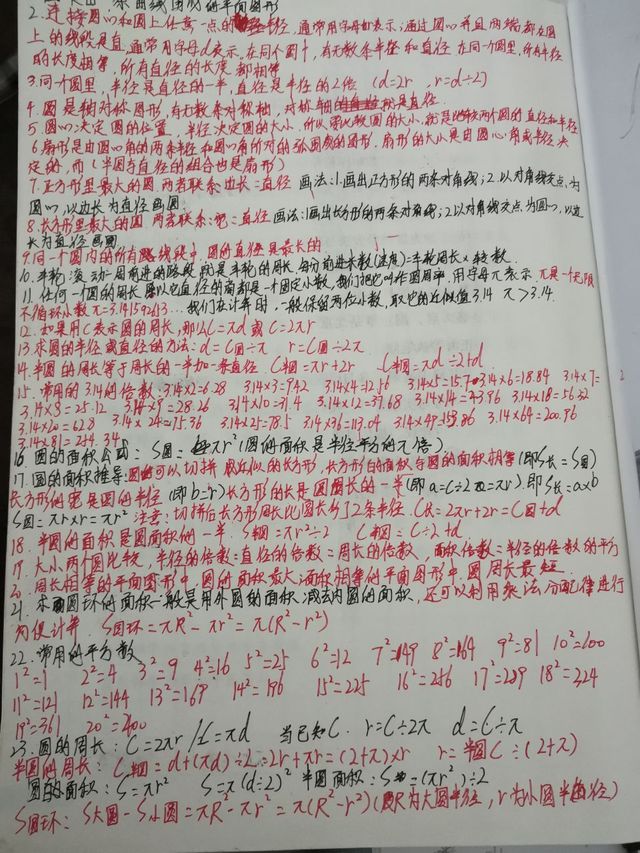 曲线图形的平面图形
2.连接圆心和圆上任意一点的半径,通常用字母r表示;通过圆心并且两端都在圆
上的线段是直,通常用字母d表示,在同个圆中,有无数条半径和直径 在同一个圆里,所有半径
的长度相等,所有直径的长度都相等
3.同一个圆里,半径是直径的一半,直径是半径的2倍 (d=2r ,r=d÷2)
4.圆是轴对称图形,有无数条对称轴,对称轴就是直径.
5.圆心决定圆的位置,半径决定圆的大小,所以要比较圆的大小,就是比较两个圆的直径和半径
6.扇形是由圆心角的两条半径和圆心角所对的弧围成的图形.扇形的大小是由圆心角或半径决
定的,而(半圆与直径的组合也是扇形)
7.正方形里最大的圆.两者联系:边长=直径 画法:1.画出正方形的两条对角线;2.以对角线交点为
圆心,以边长为直径画圆.
8.长方形里最大的圆 两者联系:宽=直径 画法:1画出长方形的两条对角线;2以对角线交点为圆心,以边
长为直径画圆
9.同一个圆内的所有线段中,圆的直径是最长的
10.车轮滚动一周前进的路段就是车轮的周长,每分前进米数(速度)=车轮周长×转数.
11.任何一个圆的周长除以它直径的商都是一个固定小数,我们把它叫作圆周率.用字母π表示 π是一个无限
不循环小数π=3.141592613...我们在计算时,一般保留两位小数,取它的近似值3.14 π>3.14.
12.如果用C表示圆的周长,那么C=πd或C=2πr
13求圆的半径或直径的方法:d=C圆÷π r=C圆÷2π
14.半圆的周长等于周长的一半加一条直径 C半圆=πr+2r C半圆=πd÷2+d.
15.常用的3.14的倍数:3.14×2=6.28 3.14×3=9.42 3.14×4=12.56 3.14×5=15.7 3.14×6=18.84 3.14×7= 2
3.14×8=25.12 3.14×9=28.26 3.14×10=31.4 3.14×12=37.68 3.14×14=43.96 3.14×18=56.52
3.14×20=62.8 3.14×24=75.36 3.14×25=78.5 3.14×36=113.04 3.14×49=153.86 3.14×64=200.96
3.14×81=254.34
16.圆的面积公式:S圆=πr²(圆的面积是半径平方的π倍)
17.圆的面积推导:圆可以切拼成近似的长方形,长方形的面积与圆的面积相等(即S长=S圆)
长方形的宽是圆的半径(即b=r)长方形的长是圆周长的一半(即a=C÷2=πr).即S长=a×b
S圆=πr×r=πr² 注意:切拼后长方形周长比圆长多了2条半径.C长=2πr+2r=C圆+d
18.半圆的面积是圆面积的一半.S半圆=πr²÷2 C半圆=C÷2+d
19.大小两个圆比较,半径的倍数=直径的倍数=周长的倍数,面积倍数=半径的倍数的平方
20.周长相等的平面图形中,圆的面积最大;面积相等的平面图形中,圆周长最短.
21.求圆环的面积一般是用外圆的面积减去内圆的面积,还可以利用乘法分配律进行
简便计算.S圆环=πR²-πr²=π(R²-r²)
22.常用的平方数
1²=1 2²=4 3²=9 4²=16 5²=25 6²=12 7²=149 8²=164 9²=81 10²=100
11²=121 12²=144 13²=169 14²=196 15²=225 16²=256 17²=289 18²=324
19²=361 20²=400
23.圆的周长:C=2πr /C=πd 当已知C. r=C÷2π d=C÷π
半圆的周长:C半圆=d+(πd)÷2=2r+πr=(2+π)×r r=半圆C÷(2+π)
圆的面积:S=πr² S=π(d÷2)² 半圆面积:S半=(πr²)÷2
S圆环:S大圆-S小圆=πR²-πr²=π(R²-r²)(R为大圆半径,r为小圆半径)